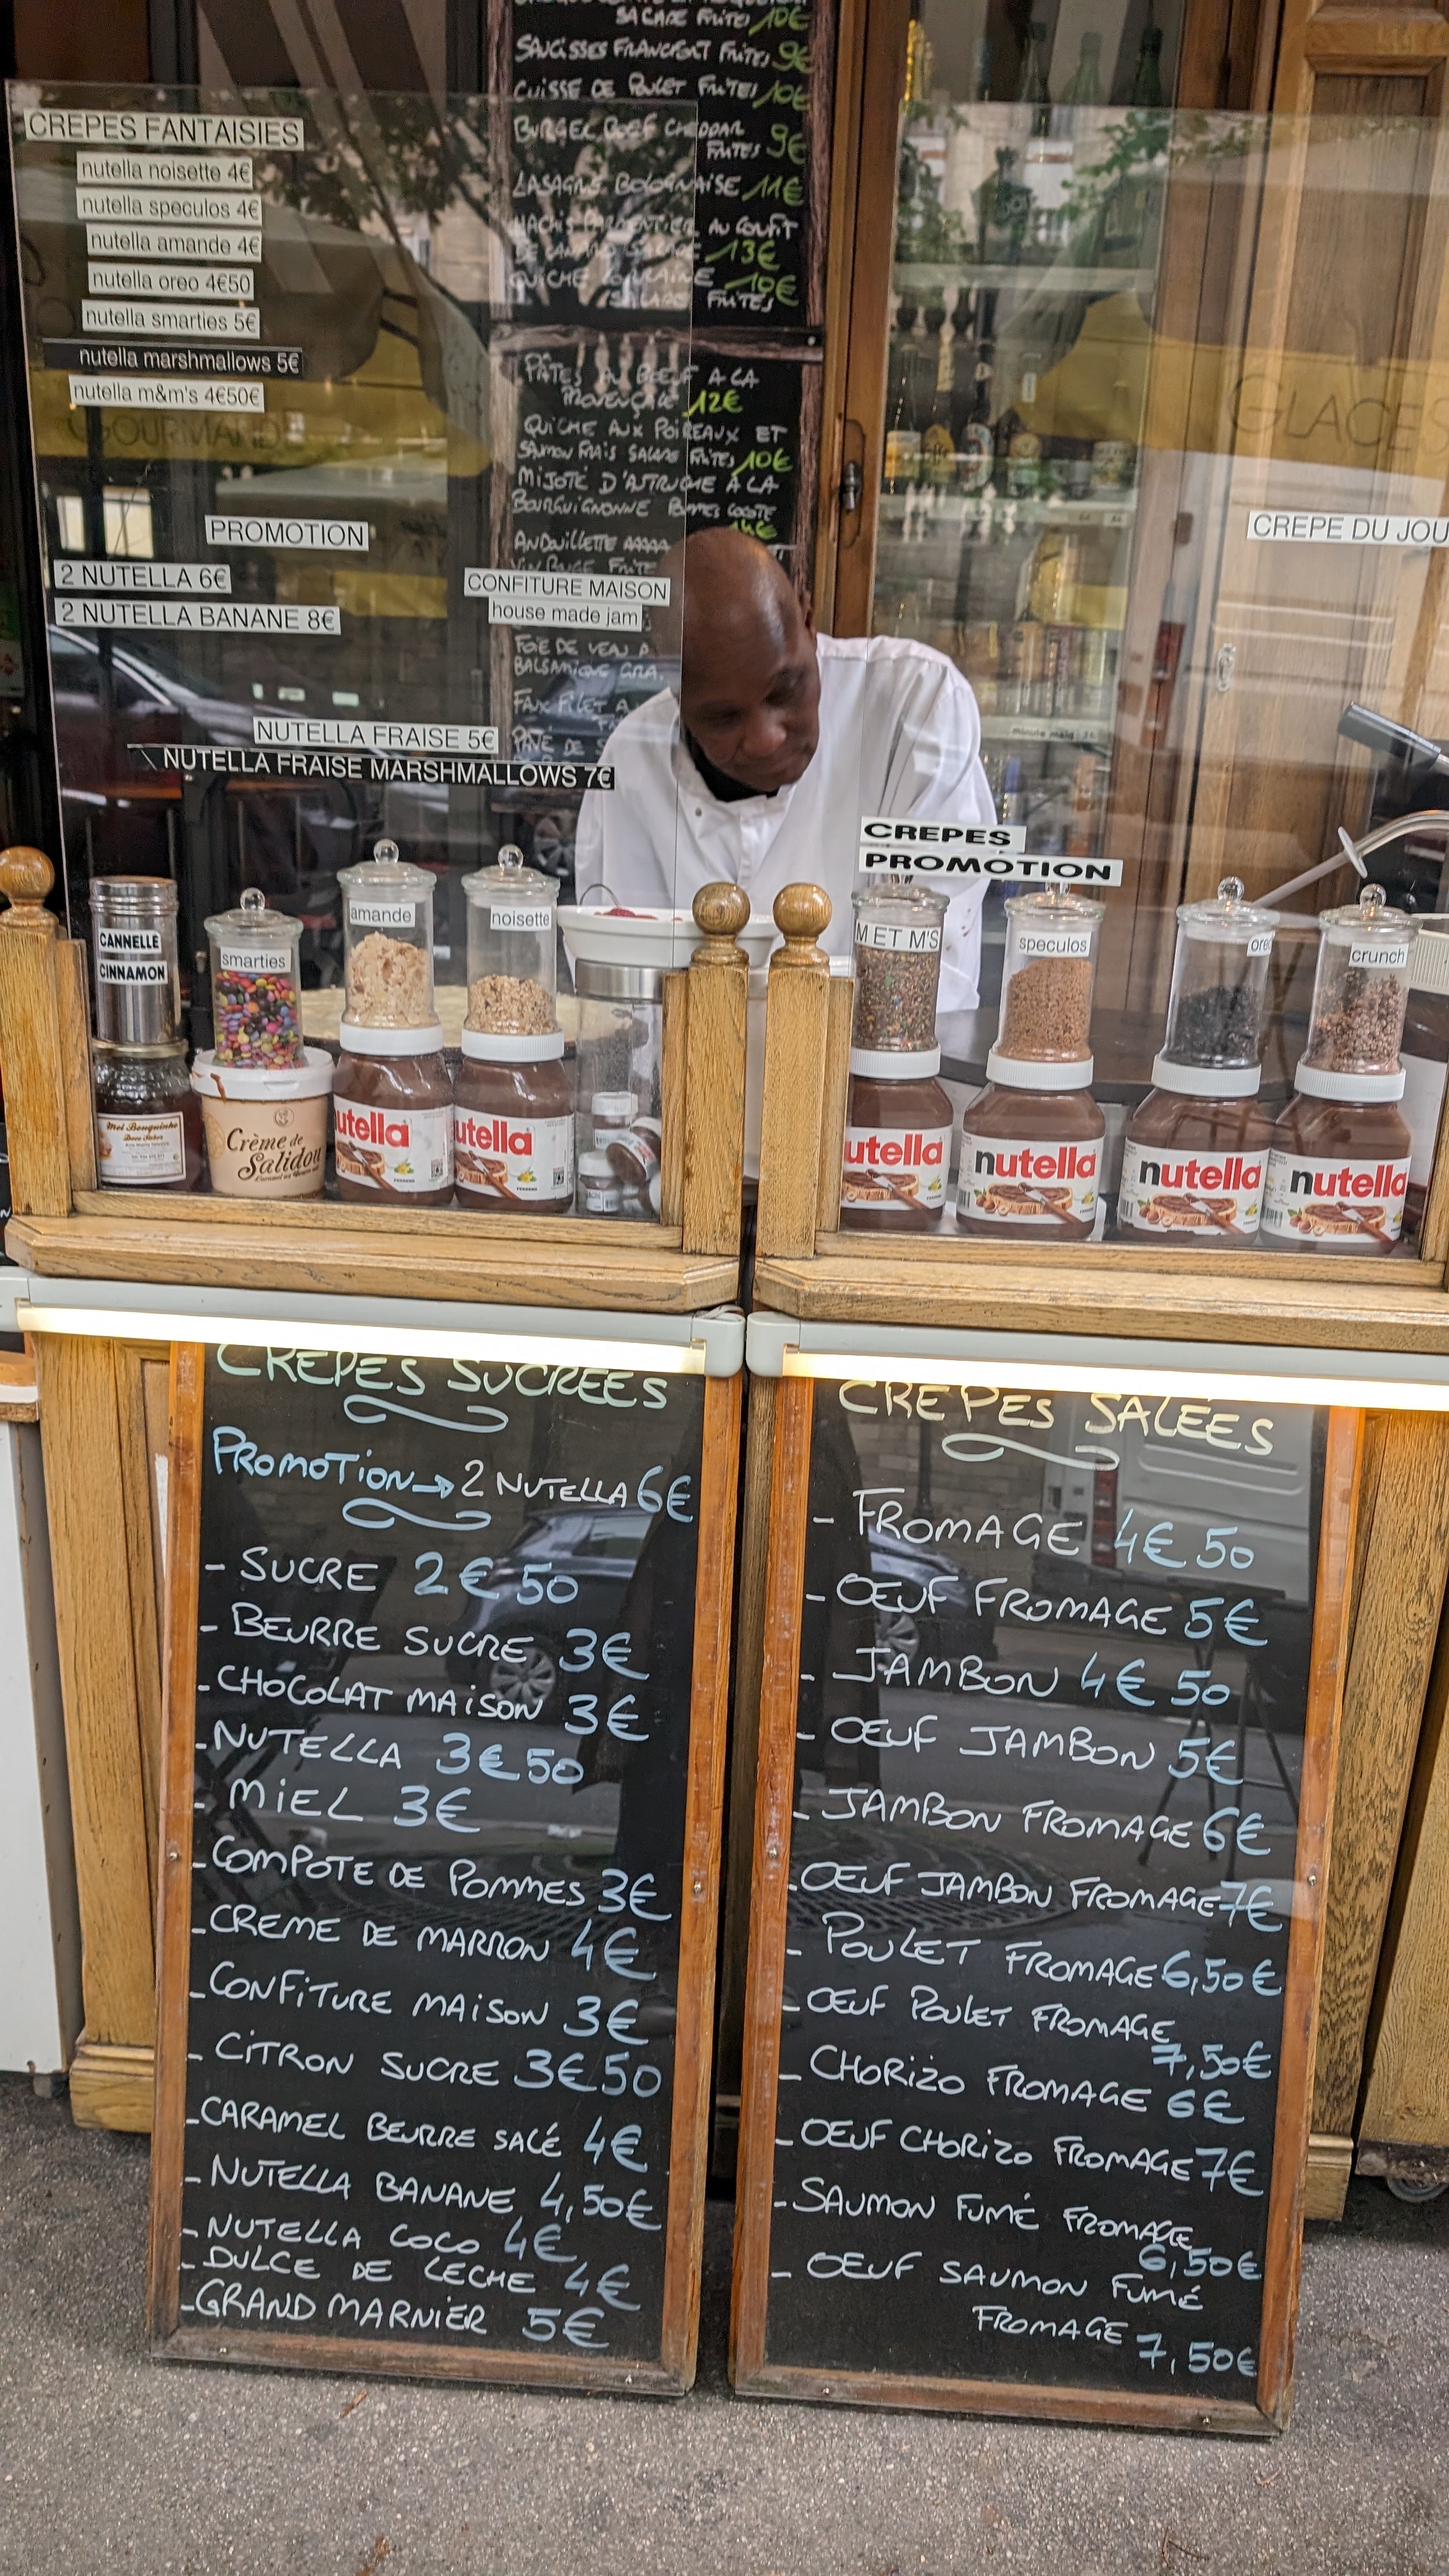 SALADE FRITES 10€
SAUCISSES FRANCFORT FRITES 9€
CUISSE DE POULET FRITES 10€
BURGER BOEF CHEDDAR
FRITES 9€
LASAGNE BOLOGNAISE 11€
HACHIS PARMENTIER AU CONFIT
DE CANARD SALADE 13€
QUICHE LORRAINE 10€
SALADE FRITES
PÂTES AU BOEUF A LA
PROVENÇALE 12€
QUICHE AUX POIREAUX ET
SAUMON FRAIS SALADE FRITES 10€
MIJOTÉ D'AUTRUCHE À LA
BOURGUIGNONNE POMMES COCOTTE
14€
ANDOUILLETTE AAAAA
VIN ROUGE FRITE
FOIE DE VEAU
BALSAMIQUE
FAUX FILET A
PAVÉ DE
CREPES FANTAISIES
nutella noisette 4€
nutella speculos 4€
nutella amande 4€
nutella oreo 4€50
nutella smarties 5€
nutella marshmallows 5€
nutella m&m's 4€50€
GOURMAND
PROMOTION
2 NUTELLA 6€
2 NUTELLA BANANE 8€
CONFITURE MAISON
house made jam
NUTELLA FRAISE 5€
NUTELLA FRAISE MARSHMALLOWS 7€
GLACES
CREPE DU JOU
minute maid
CREPES
PROMOTION
CANNELLE
CINNAMON
smarties
amande
noisette
M ET M'S
speculos
oreo
crunch
Mel Bouquinho
Crème de
Salidou
nutella
nutella
nutella
nutella
nutella
nutella
CREPES SUCREES
PROMOTION → 2 NUTELLA 6€
- SUCRE 2€50
- BEURRE SUCRE 3€
- CHOCOLAT MAISON 3€
- NUTELLA 3€50
- MIEL 3€
- COMPOTE DE POMMES 3€
- CREME DE MARRON 4€
- CONFITURE MAISON 3€
- CITRON SUCRE 3€50
- CARAMEL BEURRE SALÉ 4€
- NUTELLA BANANE 4,50€
- NUTELLA COCO 4€
- DULCE DE LECHE 4€
- GRAND MARNIER 5€
CREPES SALEES
- FROMAGE 4€50
- OEUF FROMAGE 5€
- JAMBON 4€50
- OEUF JAMBON 5€
- JAMBON FROMAGE 6€
- OEUF JAMBON FROMAGE 7€
- POULET FROMAGE 6,50€
- OEUF POULET FROMAGE
7,50€
- CHORIZO FROMAGE 6€
- OEUF CHORIZO FROMAGE 7€
- SAUMON FUMÉ FROMAGE
6,50€
- OEUF SAUMON FUMÉ
FROMAGE
7,50€